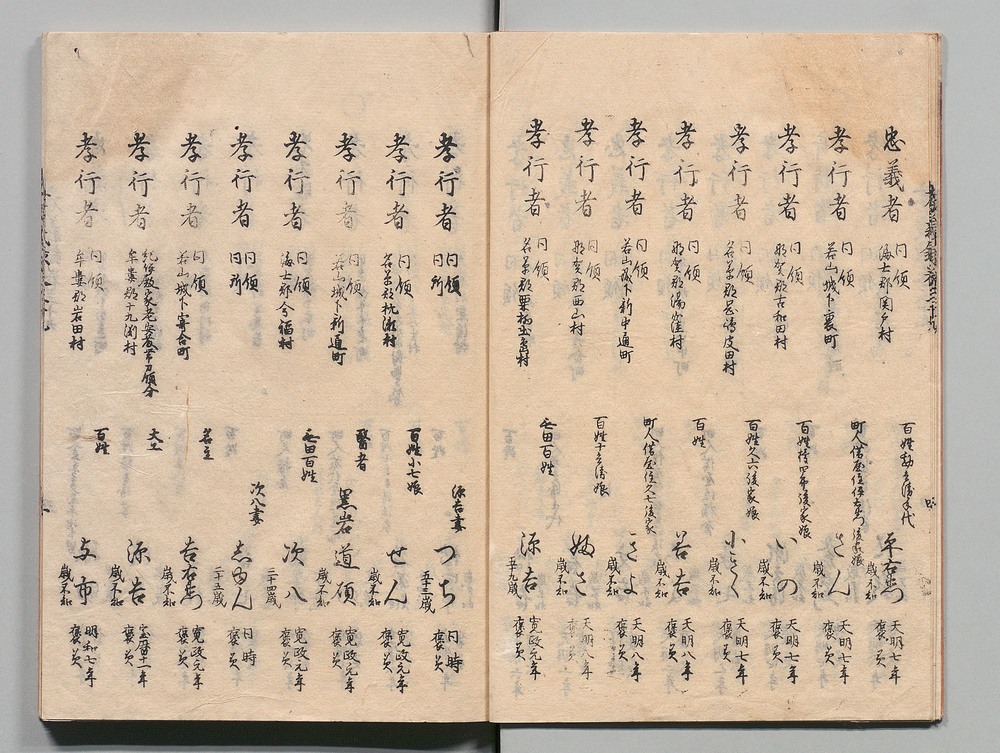 忠義者 同領 海士郡関戸村 百姓 手代 平右衛門 天明七年 褒美
孝行者 同領 若山城下裏町 町人借屋住 後家娘 さん 歳不知 天明七年 褒美
孝行者 同領 那賀郡古和田村 百姓 後家娘 いの 歳不知 天明七年 褒美
孝行者 同領 名草郡 皮田村 百姓久六後家娘 小さく 歳不知 天明七年 褒美
孝行者 同領 那賀郡湯窪村 百姓 岩吉 歳不知 天明八年 褒美
孝行者 同領 若山城下新中通町 町人借屋住久七後家 さよ 歳不知 天明八年 褒美
孝行者 同領 那賀郡西山村 百姓十兵衛娘 ぬさ 歳不知 天明八年 褒美
孝行者 同領 名草郡栗栖 村 無田百姓 源吉 五十九歳 寛政元年 褒美
孝行者 同領 同所 源吉妻 つち 五十三歳 同時 褒美
孝行者 同領 名草郡杭瀬村 百姓小七娘 せん 歳不知 寛政元年 褒美
孝行者 同領 若山城下新通町 醫者 黒岩道碩 歳不知 寛政元年 褒美
孝行者 同領 海士郡今福村 無田百姓 次八 三十四歳 寛政元年 褒美
孝行者 同領 同所 次八妻 志ゆん 二十五歳 同時 褒美
孝行者 同領 若山城下寄合町 吉右衛門 歳不知 寛政元年 褒美
孝行者 紀伊殿家老安藤帯刀領分 牟婁郡十九渕村 大工 源吉 歳不知 宝暦十一年 褒美
孝行者 同領 牟婁郡岩田村 百姓 与市 歳不知 明和七年 褒美